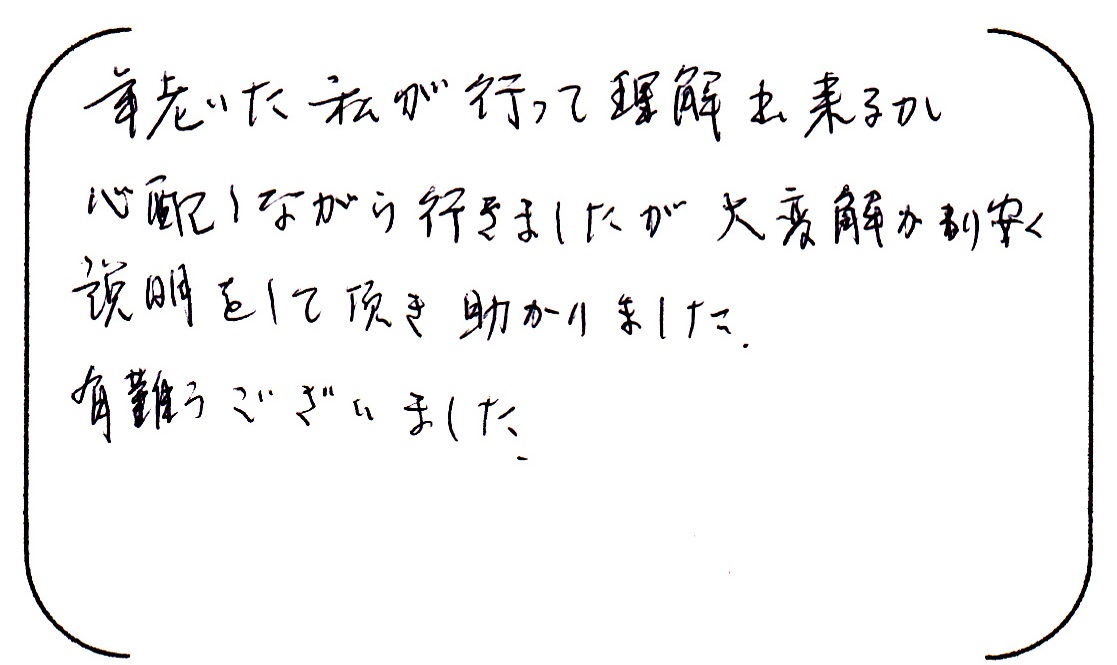 年老いた私が行って理解出来るか
心配しながら行きましたが大変解か割安く
説明をして頂き助かりました.
有難うございました.